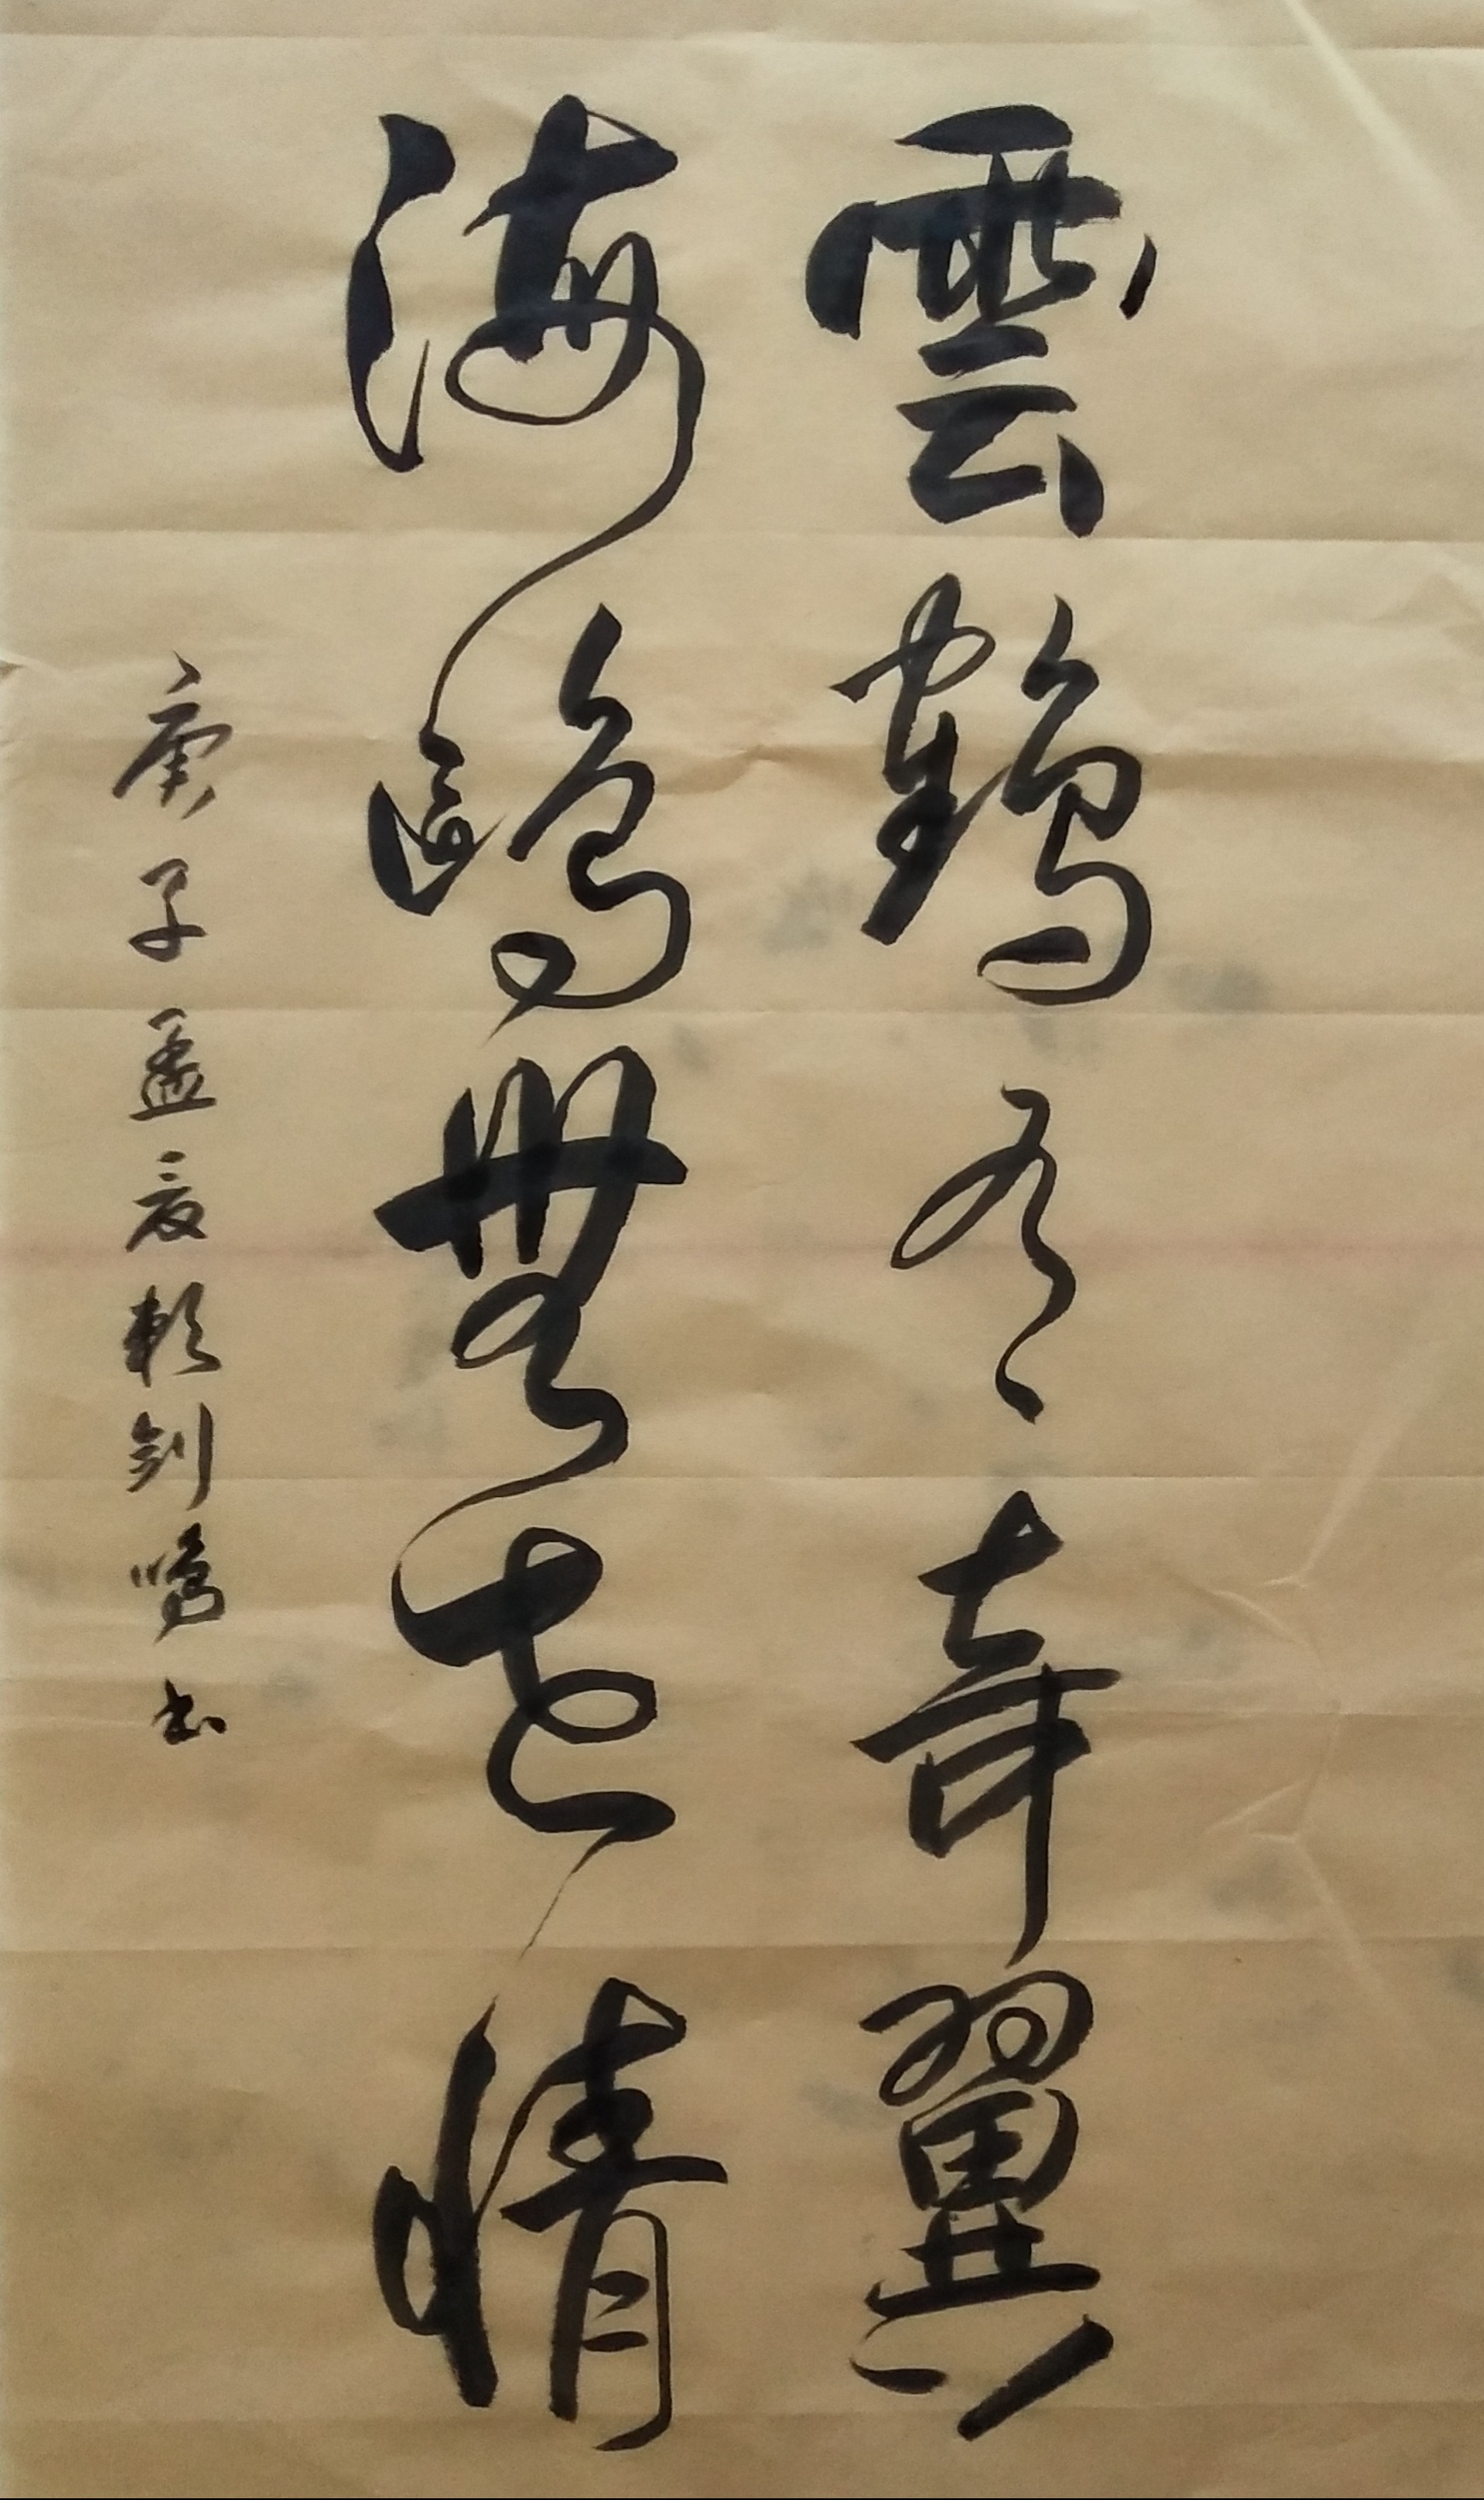 雲鶴有奇翼
海鷗無世情
庚子孟夏賴劍鳴書